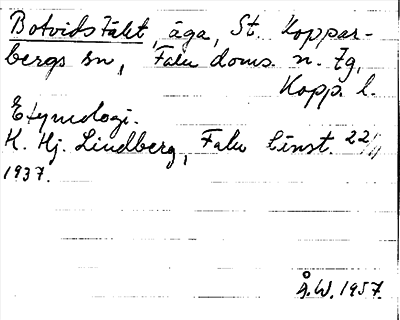 Botvidstäkt, äga, St. Koppar-
bergs sn, Falu doms. n. tg,
Kopp. l.
Etymologi.
K. Hj. Lindberg, Falu länst. 22/11
1937.
Å.W. 1957.